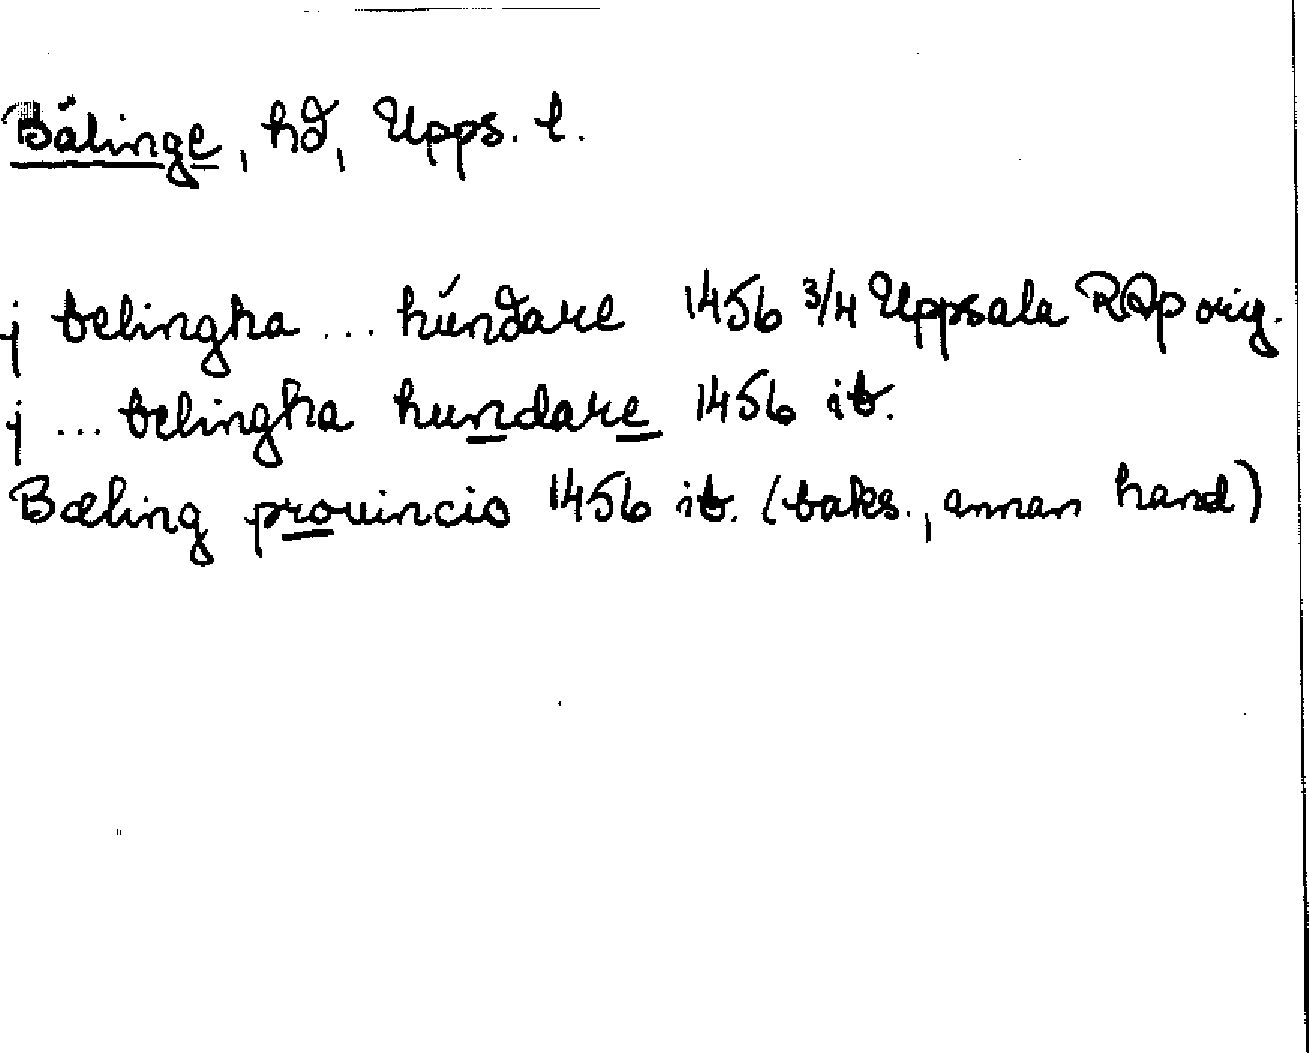 Bälinge, hd, Upps. l.
j belingha ... húndare 1456 3/4 Uppsala RAp orig.
j ... belingha hundare 1456 ib.
Bæling prouincio 1456 ib. (baks., annan hand)